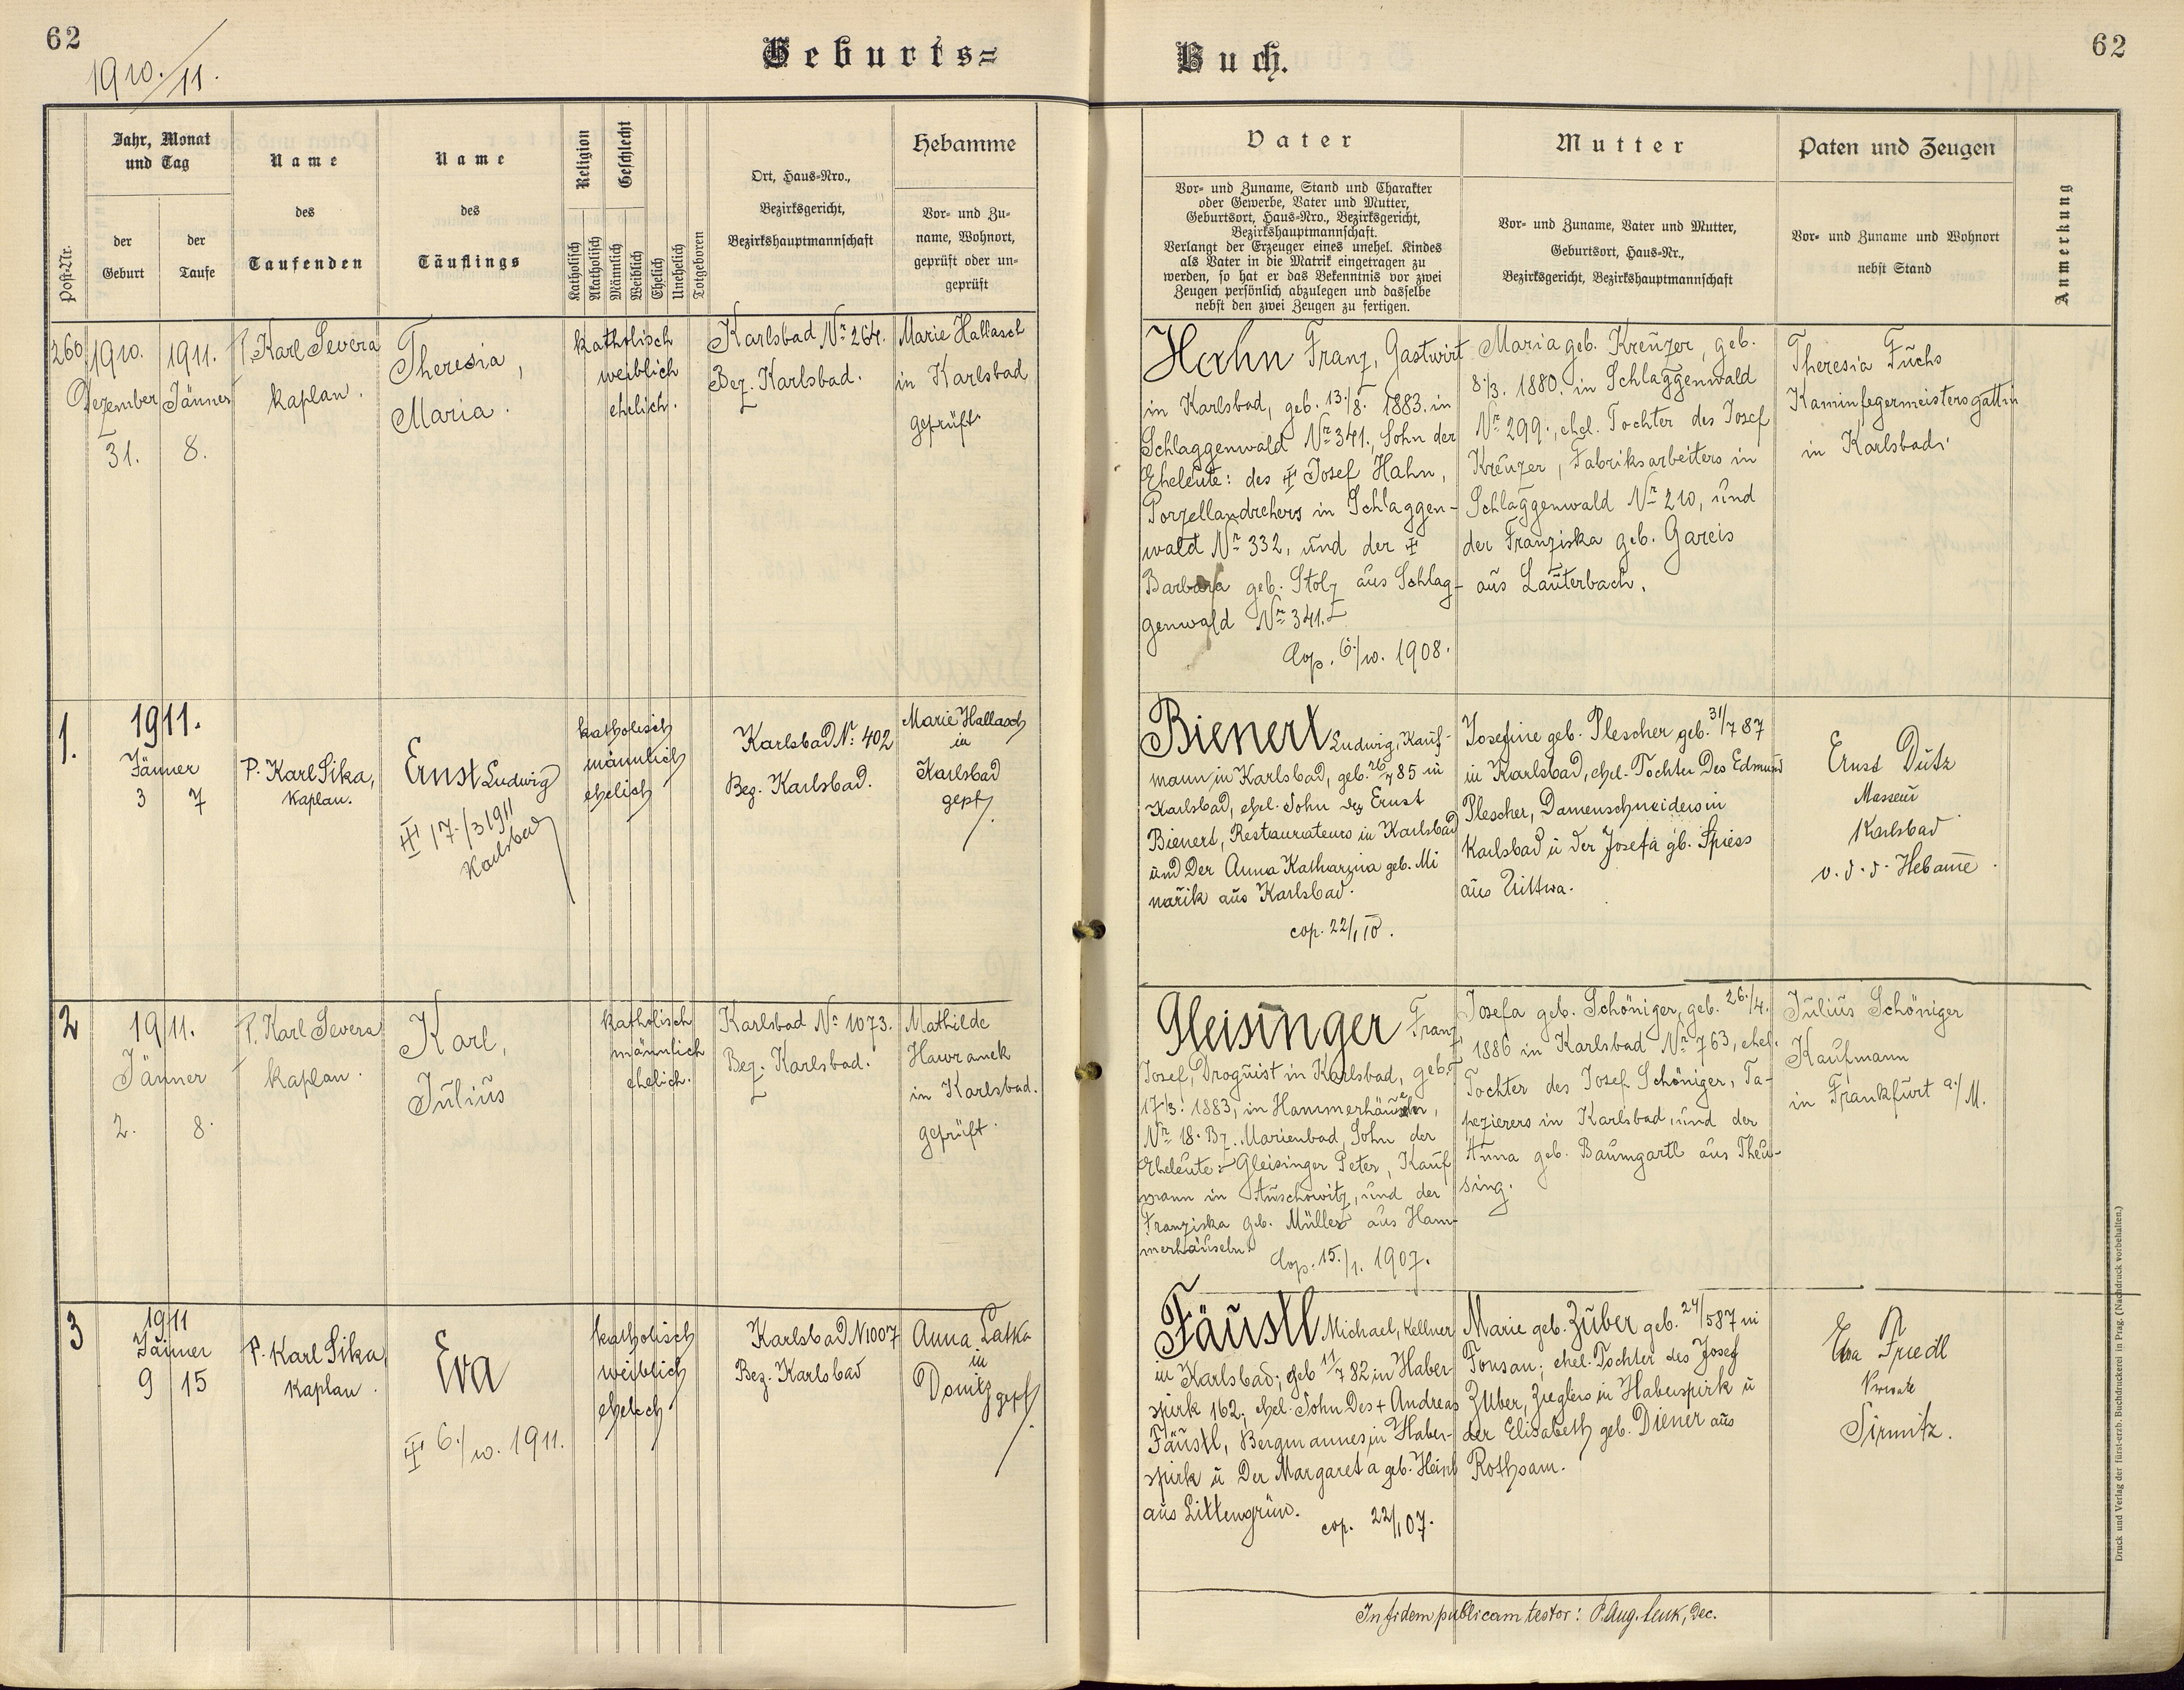 62
1910./11.
Geburts=
Buch.
62
Post-Nr.
Jahr, Monat
und Tag
der
Geburt
der
Taufe
Name
des
Taufenden
Name
des
Täuflings
Religion
Katholisch
Akatholisch
Geschlecht
Männlich
Weiblich
Ehelich
Unehelich
Totgeboren
Ort, Haus-Nro.,
Bezirksgericht,
Bezirkshauptmannschaft
Hebamme
Vor- und Zu-
name, Wohnort,
geprüft oder un-
geprüft
Vater
Vor- und Zuname, Stand und Charakter
oder Gewerbe, Vater und Mutter,
Geburtsort, Haus-Nro., Bezirksgericht,
Bezirkshauptmannschaft.
Verlangt der Erzeuger eines unehel. Kindes
als Vater in die Matrik eingetragen zu
werden, so hat er das Bekenntnis vor zwei
Zeugen persönlich abzulegen und dasselbe
nebst den zwei Zeugen zu fertigen.
Mutter
Vor- und Zuname, Vater und Mutter,
Geburtsort, Haus-Nr.,
Bezirksgericht, Bezirkshauptmannschaft
Paten und Zeugen
Vor- und Zuname und Wohnort
nebst Stand
Anmerkung
260
1910.
Dezember
31.
1911.
Jänner
8.
P. Karl Severa
kaplan.
Theresia,
Maria.
katholisch
weiblich
ehelich.
Karlsbad Nr. 264.
Bez. Karlsbad.
Marie Hallasch
in Karlsbad
geprüft
Hahn Franz, Gastwirt
in Karlsbad, geb. 13./8. 1883. in
Schlaggenwald Nr. 341., Sohn der
Eheleute: des ‡ Josef Hahn,
Porzellandrehers in Schlaggen-
wald Nr. 332, und der ‡
Barbara geb. Stolz aus Schlag-
genwald Nr. 341.
Cop. 6./10. 1908.
Maria geb. Kreuzer, geb.
8./3. 1880. in Schlaggenwald
Nr. 299., ehel. Tochter des Josef
Kreuzer, Fabriksarbeiters in
Schlaggenwald Nr. 210, und
der Franziska geb. Gareis
aus Lauterbach.
Theresia Fuchs
Kaminfegermeistersgattin
in Karlsbad.
1.
1911.
Jänner
3 7
P. Karl Sika,
Kaplan.
Ernst Ludwig
‡ 17./3 1911
Karlsbad
katholisch
männlich
ehelich
Karlsbad Nr. 402
Bez. Karlsbad.
Marie Hallasch
in
Karlsbad
gepf.
Bienert Ludwig, Kauf-
mann in Karlsbad, geb. 26/7 85 in
Karlsbad, ehel. Sohn des Ernst
Bienert, Restaurateurs in Karlsbad
und der Anna Katharina geb. Mi
nařik aus Karlsbad.
cop. 22/1 10.
Josefine geb. Plescher geb. 31/7 87
in Karlsbad, ehel. Tochter des Edmund
Plescher, Damenschneiders in
Karlsbad u der Josefa gb. Spiess
aus Zittwa.
Ernst Dutz
Masseur
Karlsbad
v. d. d. Hebame.
2
1911.
Jänner
2. 8.
P. Karl Severa
kaplan.
Karl,
Julius
katholisch
männlich
ehelich.
Karlsbad Nr. 1073.
Bez. Karlsbad.
Mathilde
Hawranek
in Karlsbad.
geprüft.
Gleisinger Franz
Josef, Droguist in Karlsbad, geb.
17./3. 1883, in Hammerhäuseln,
Nr. 18. Bz. Marienbad, Sohn der
Eheleute: Gleisinger Peter, Kauf
mann in Auschowitz, und der
Franziska geb. Müller aus Ham-
merhäuseln.
Cop. 15./1. 1907.
Josefa geb. Schöniger, geb. 26./4.
1886 in Karlsbad Nr. 763, ehel.
Tochter des Josef Schöniger, Ta-
pezierers in Karlsbad, und der
Anna geb. Baumgartl aus Theu-
sing.
Julius Schöniger
Kaufmann
in Frankfurt a./M.
3
1911
Jänner
9 15
P. Karl Sika,
Kaplan.
Eva
‡ 6./10. 1911.
katholisch
weiblich
ehelich
Karlsbad N 1007
Bez. Karlsbad
Anna Latka
in
Donitz gepf.
Fäustl Michael, Kellner
in Karlsbad; geb 11/7 82 in Haber-
spirk 162; ehel. Sohn des + Andreas
Fäustl, Bergmannes in Haber-
spirk u der Margareta geb. Heinl
aus Littengrün.
cop. 22/1 07.
Marie geb. Zuber geb. 24/5 87 in
Fonsau; ehel. Tochter des Josef
Zuber, Zieglers in Haberspirk u
der Elisabeth geb. Diener aus
Rothsam.
Eva Friedl
Private
Sirmitz.
In fidem publicam testor: P. Aug. Lenk, Dec.
Druck und Verlag der fürst-erzb. Buchdruckerei in Prag. (Nachdruck vorbehalten.)